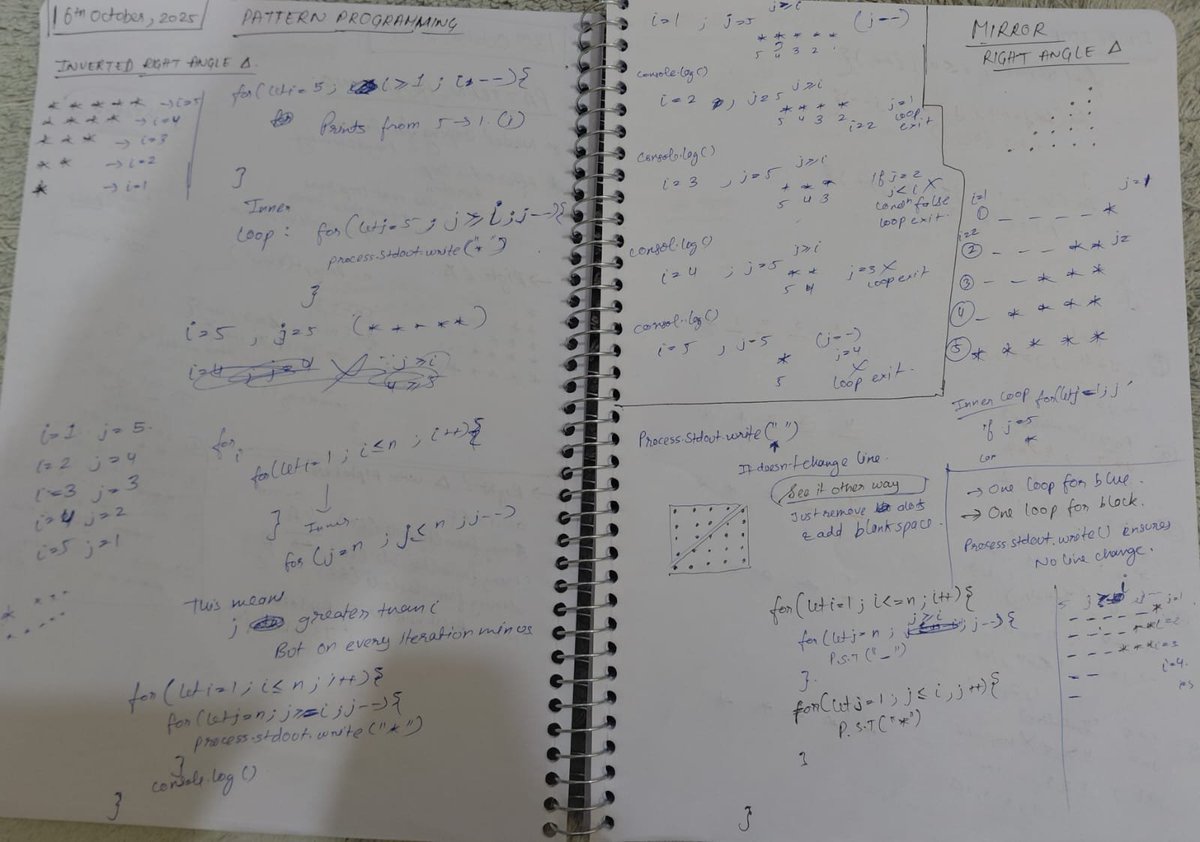 16th October, 2025
PATTERN PROGRAMMING
INVERTED RIGHT ANGLE Δ.
* * * * * → i=5
* * * * → i=4
* * * → i=3
* * → i=2
* → i=1
for(let i=5; i>=1; i--){
Prints from 5→1 (j)
}
Inner
Loop: for(let j=5; j>=i; j--){
process.stdout.write("*")
}
i=5, j=5 (* * * * *)
i=1 j=5
i=2 j=4
i=3 j=3
i=4 j=2
i=5 j=1
for,
for(let i=1; i≤n; i++){
} Inner
for (j=n; j≤n j--)
This means
j greater than i
But on every iteration minus
for(let i=1; i≤n; i++){
for(let j=n; j>=i; j--){
process.stdout.write("*")
}
console.log()
}
i=1; j=5 j≥i (j--)
* * * * *
5 4 3 2
console.log()
i=2, j=5 j≥i
* * * * j=1 loop
5 4 3 2 i=2 exit
console.log()
i=3, j=5 j≥i
* * * if j=2
5 4 3 j<i X
condn false
loop exit
console.log()
i=4, j=5 j≥i
* * j=3 X
5 4 loop exit
console.log()
i=5, j=5 (j--)
* j=4
5 X
loop exit.
MIRROR
RIGHT ANGLE Δ
i=1 j=1
① _ _ _ _ *
i=2
② _ _ _ * * j=
③ _ _ * * *
④ _ * * * *
⑤ * * * * *
Inner loop for(let j=1; j
if j=5
*
Process.stdout.write(" ")
*
It doesn't change line.
See it other way
Just remove dots
& add blank space.
→ One loop for blue.
→ One loop for black.
Process.stdout.write() ensures
No line change.
for(let i=1; i<=n; i++){
for(let j=n; j≥i; j--){
P.S.T("_")
}.
for(let j=1; j≤i, j++){
P.S.T("*")
}
}
j=1
i=2
i=3
i=4.